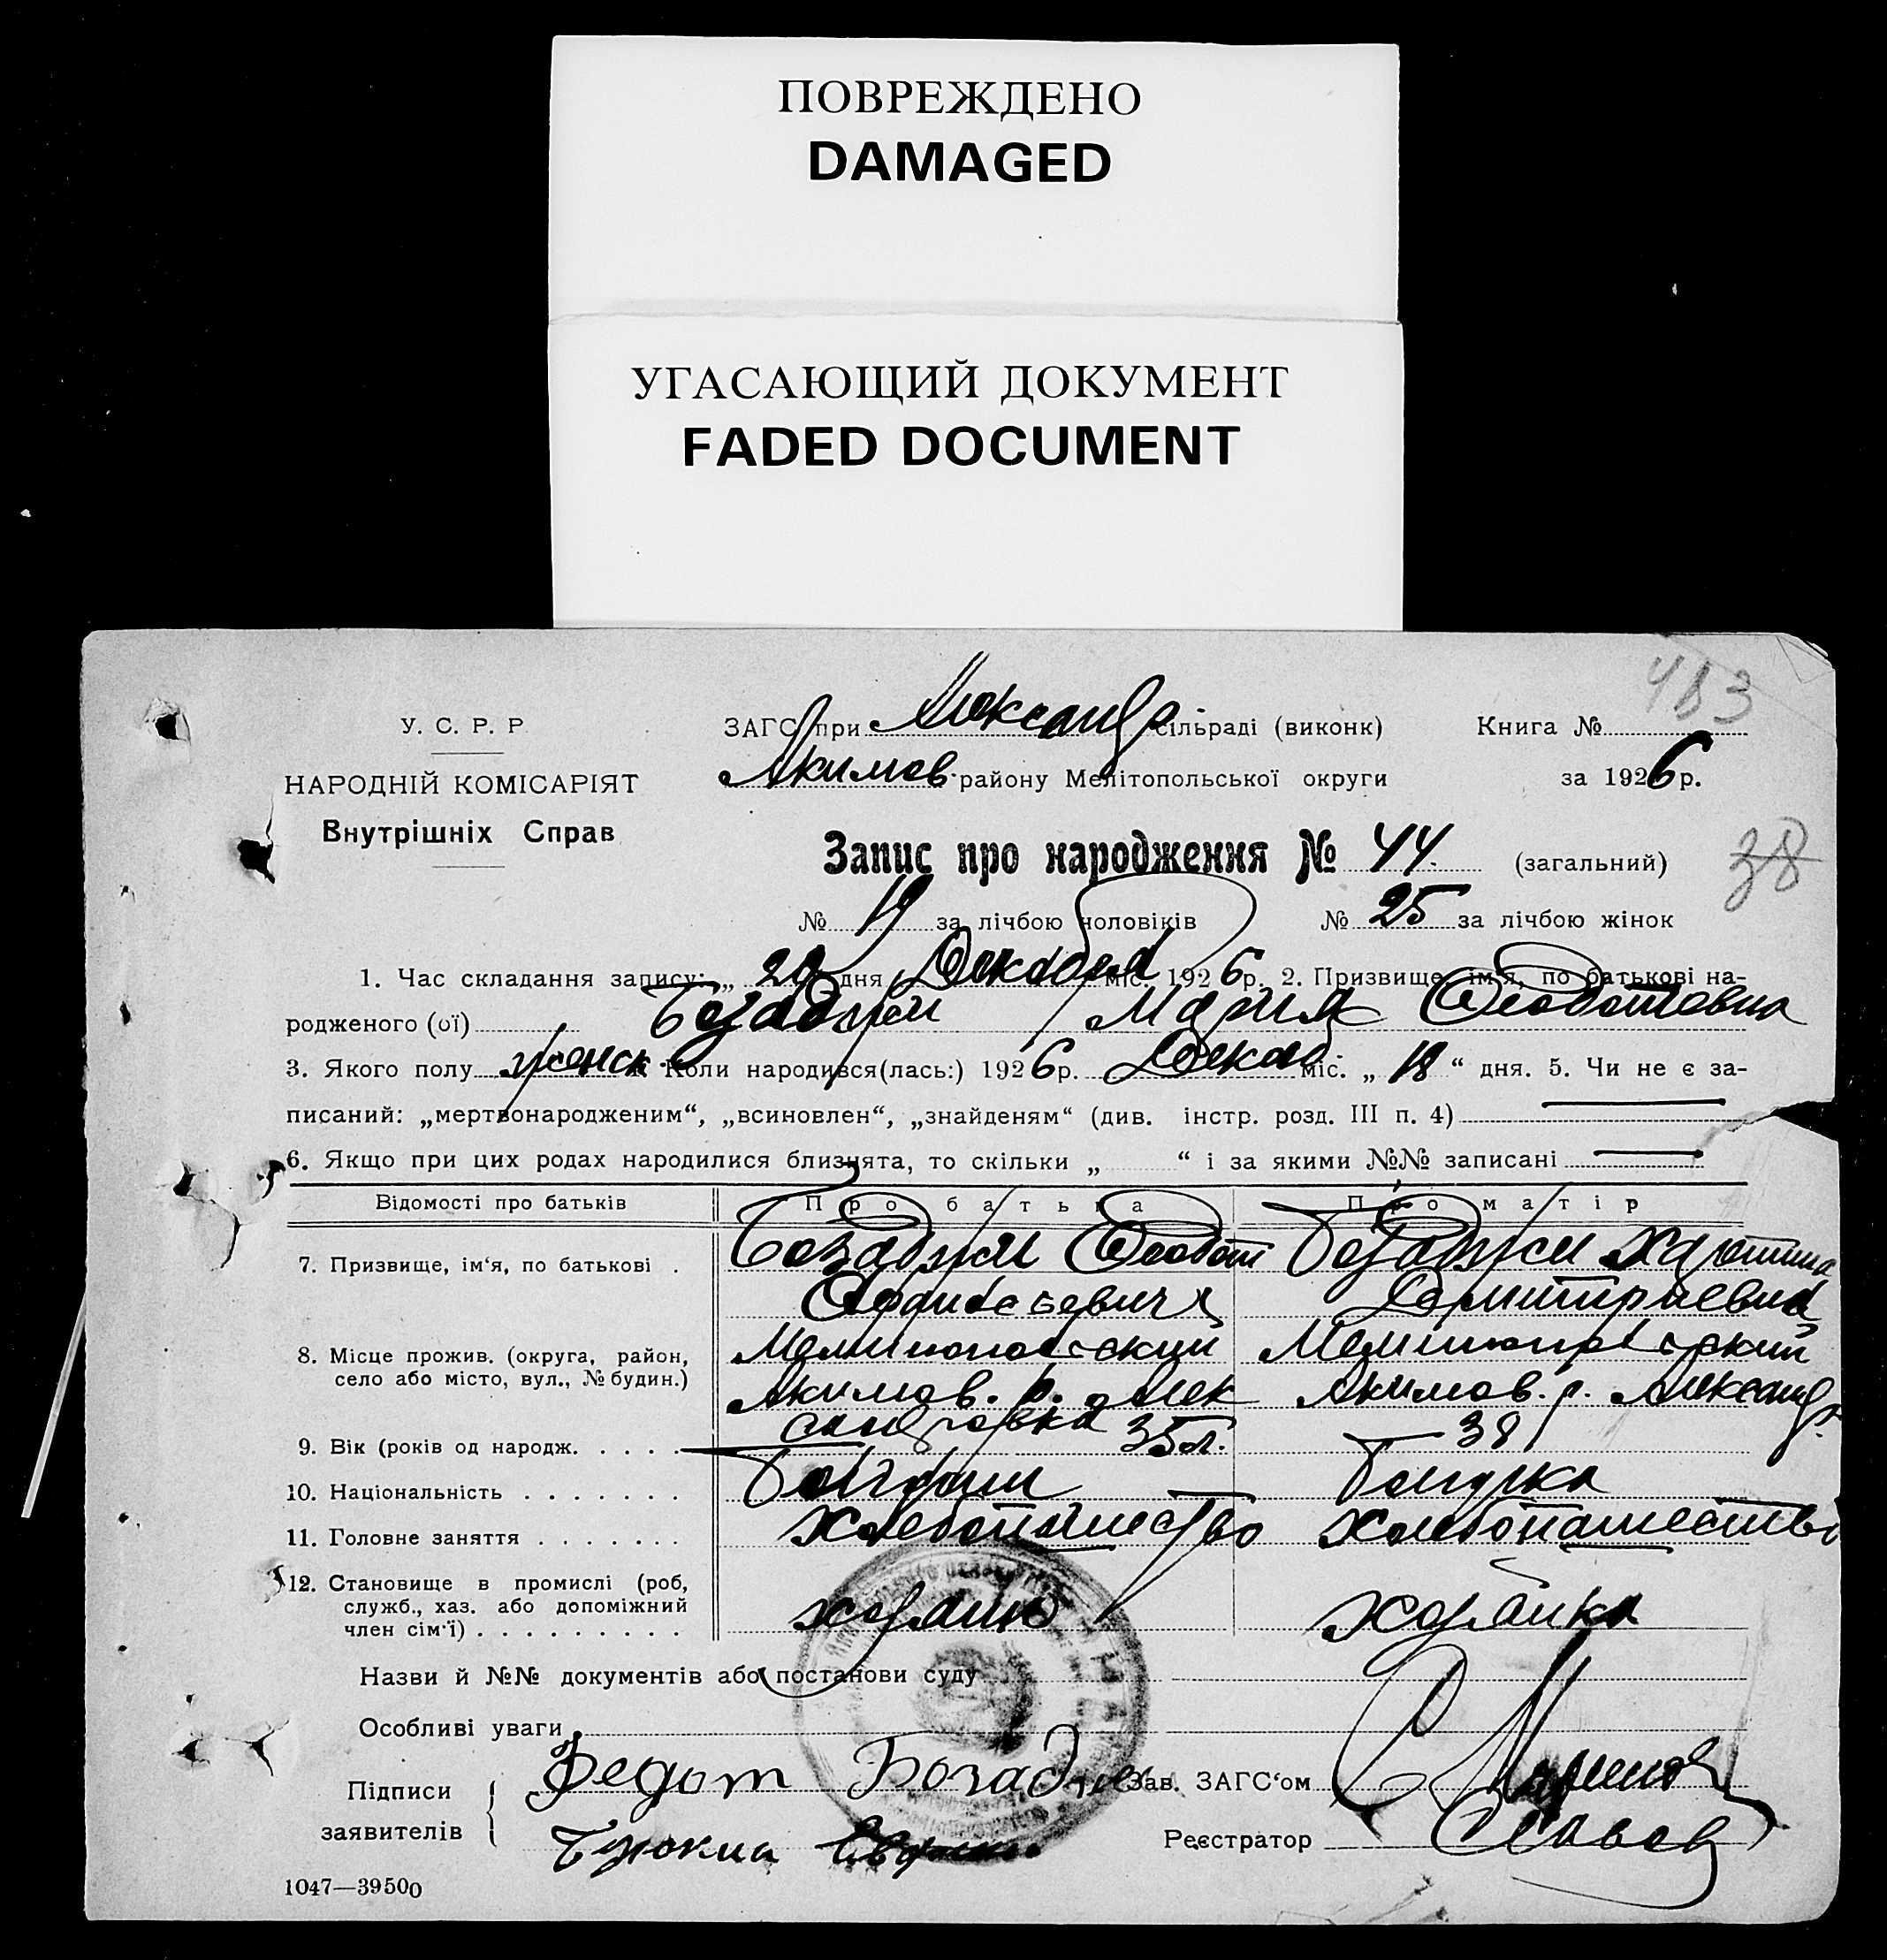 ПОВРЕЖДЕНО
DAMAGED
УГАСАЮЩИЙ ДОКУМЕНТ
FADED DOCUMENT
483
У. С. Р. Р.
ЗАГС при Александр сільраді (виконк)
Книга №
НАРОДНІЙ КОМІСАРІЯТ
Акимов. району Мелітопольської округи
за 1926 р.
Внутрішніх Справ
Запис про народження № 44. (загальний)
38
№ 19 за лічбою чоловіків № 25 за лічбою жінок
1. Час складання запису: „ 29 дня Декабря міс. 1926 р. 2. Призвище, ім'я, по батькові на-
родженого (ої) Мария Феодотовна
3. Якого полу женск. Коли народився(лась:) 1926 р. Декаб міс. „ 18 “ дня. 5. Чи не є за-
писаний: „мертвонародженим“, „всиновлен“, „знайденям“ (див. інстр. розд. III п. 4)
6. Якщо при цих родах народилися близнята, то скільки „ “ і за якими №№ записані
Відомості про батьків
Про батька
Про матір
7. Призвище, ім'я, по батькові .
Феодот
Дмитриевна
8. Місце прожив. (округа, район,
село або місто, вул., № будин.)
Мелитопольский
Акимов. р. Алек
сандровка
Мелитопольский
Акимов. р. Александр.
9. Вік (років од народж. . . . .
35 л.
38
10. Національність . . . . . . .
Болгарин
Болгарка
11. Головне заняття . . . . . . .
Хлебопашество
Хлебопашество
12. Становище в промислі (роб,
служб., хаз. або допоміжний
член сім'ї) . . . . . . . . .
хозяин
хозяйка
Назви й №№ документів або постанови суду
Особливі уваги
Підписи
заявителів
Федот
Зав. ЗАГС'ом
Реєстратор
1047—39500